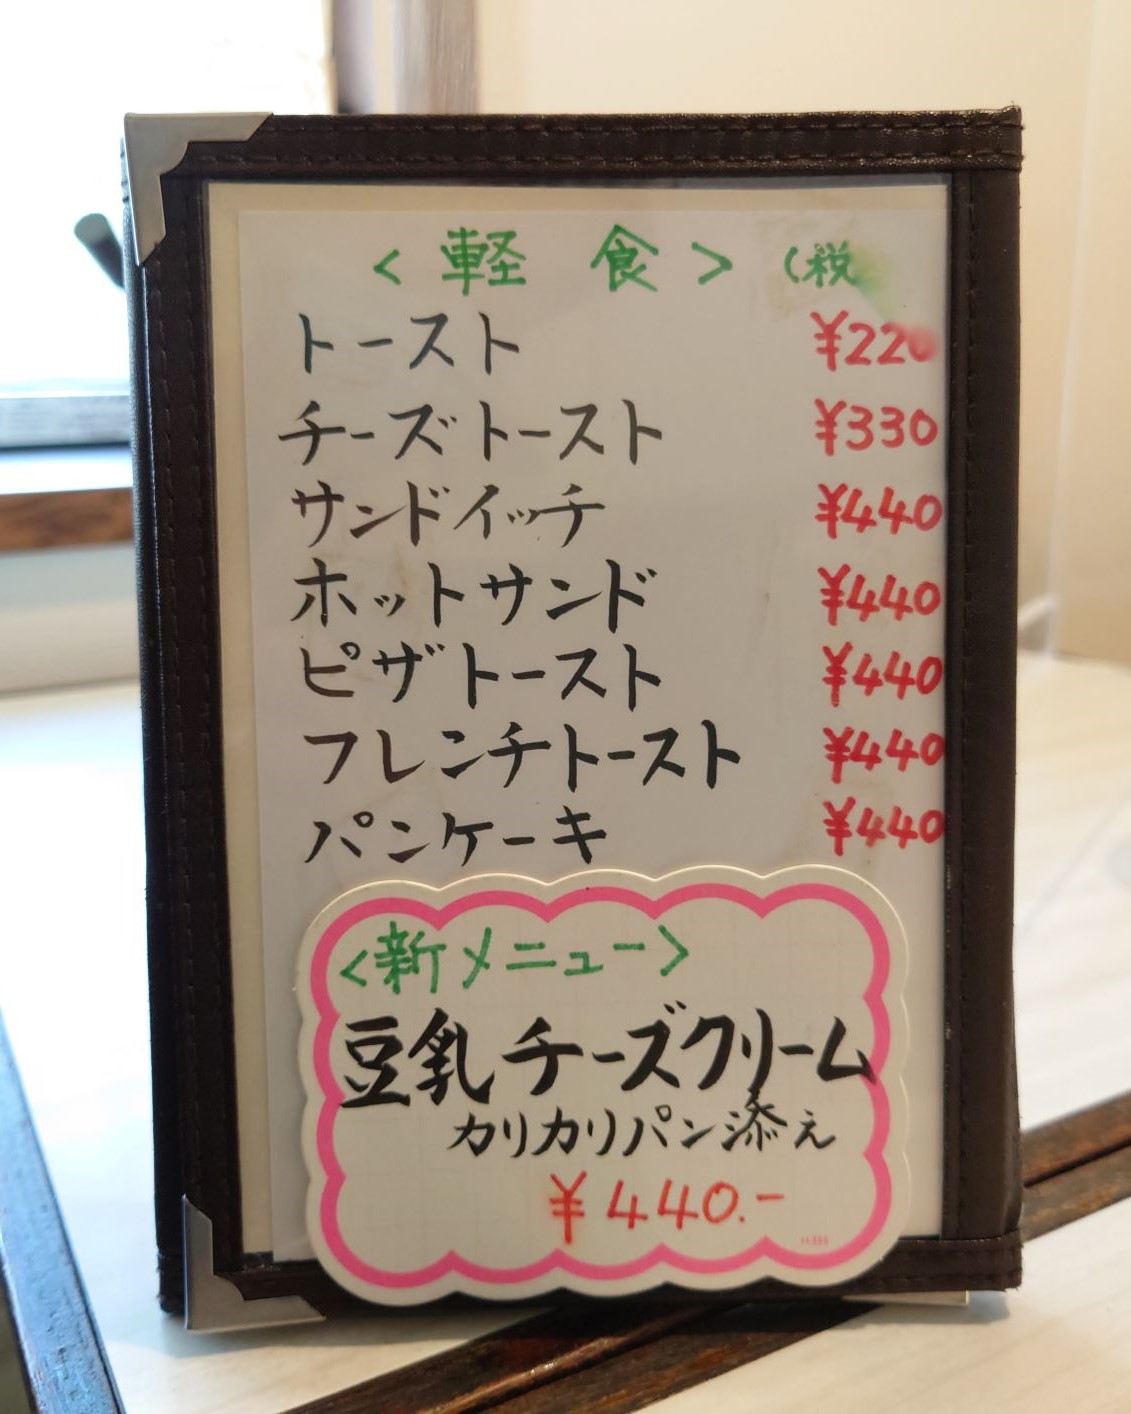 <軽食> (税
トースト ¥220
チーズトースト ¥330
サンドイッチ ¥440
ホットサンド ¥440
ピザトースト ¥440
フレンチトースト ¥440
パンケーキ ¥440
<新メニュー>
豆乳チーズクリーム
カリカリパン添え
¥440.-